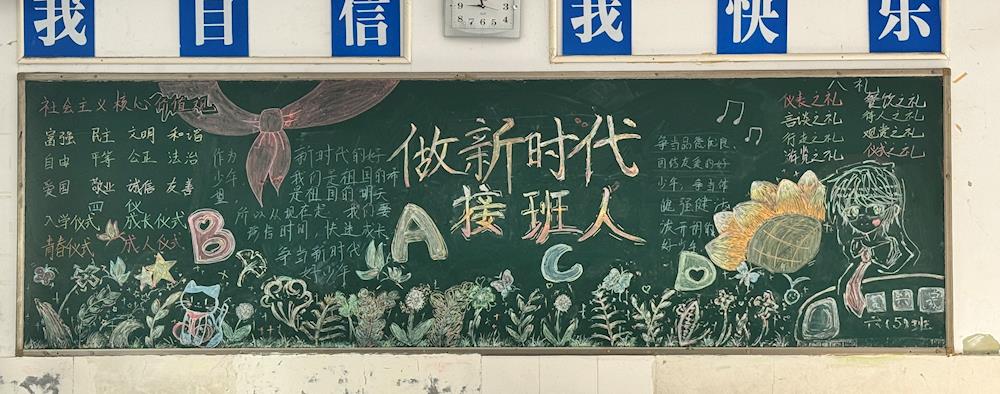 我自信
我快乐
9 8 7 6 5 4
社会主义核心价值观
富强 民主 文明 和谐
自由 平等 公正 法治
爱国 敬业 诚信 友善
四仪
入学仪式 成长仪式
青春仪式 成人仪式
作为新时代的好
少年,我们是祖国的希
望,是祖国的明天
所以从现在起,我们要
珍惜时间,快速成长
争当新时代
好少年
做新时代
接班人
B
A
C
D
争当品德优良、
团结友爱的好
少年,争当体
魄强健、活
泼开朗的
好少年
八礼
仪表之礼 餐饮之礼
言谈之礼 待人之礼
行走之礼 观赏之礼
游览之礼 仪式之礼
六(5)班